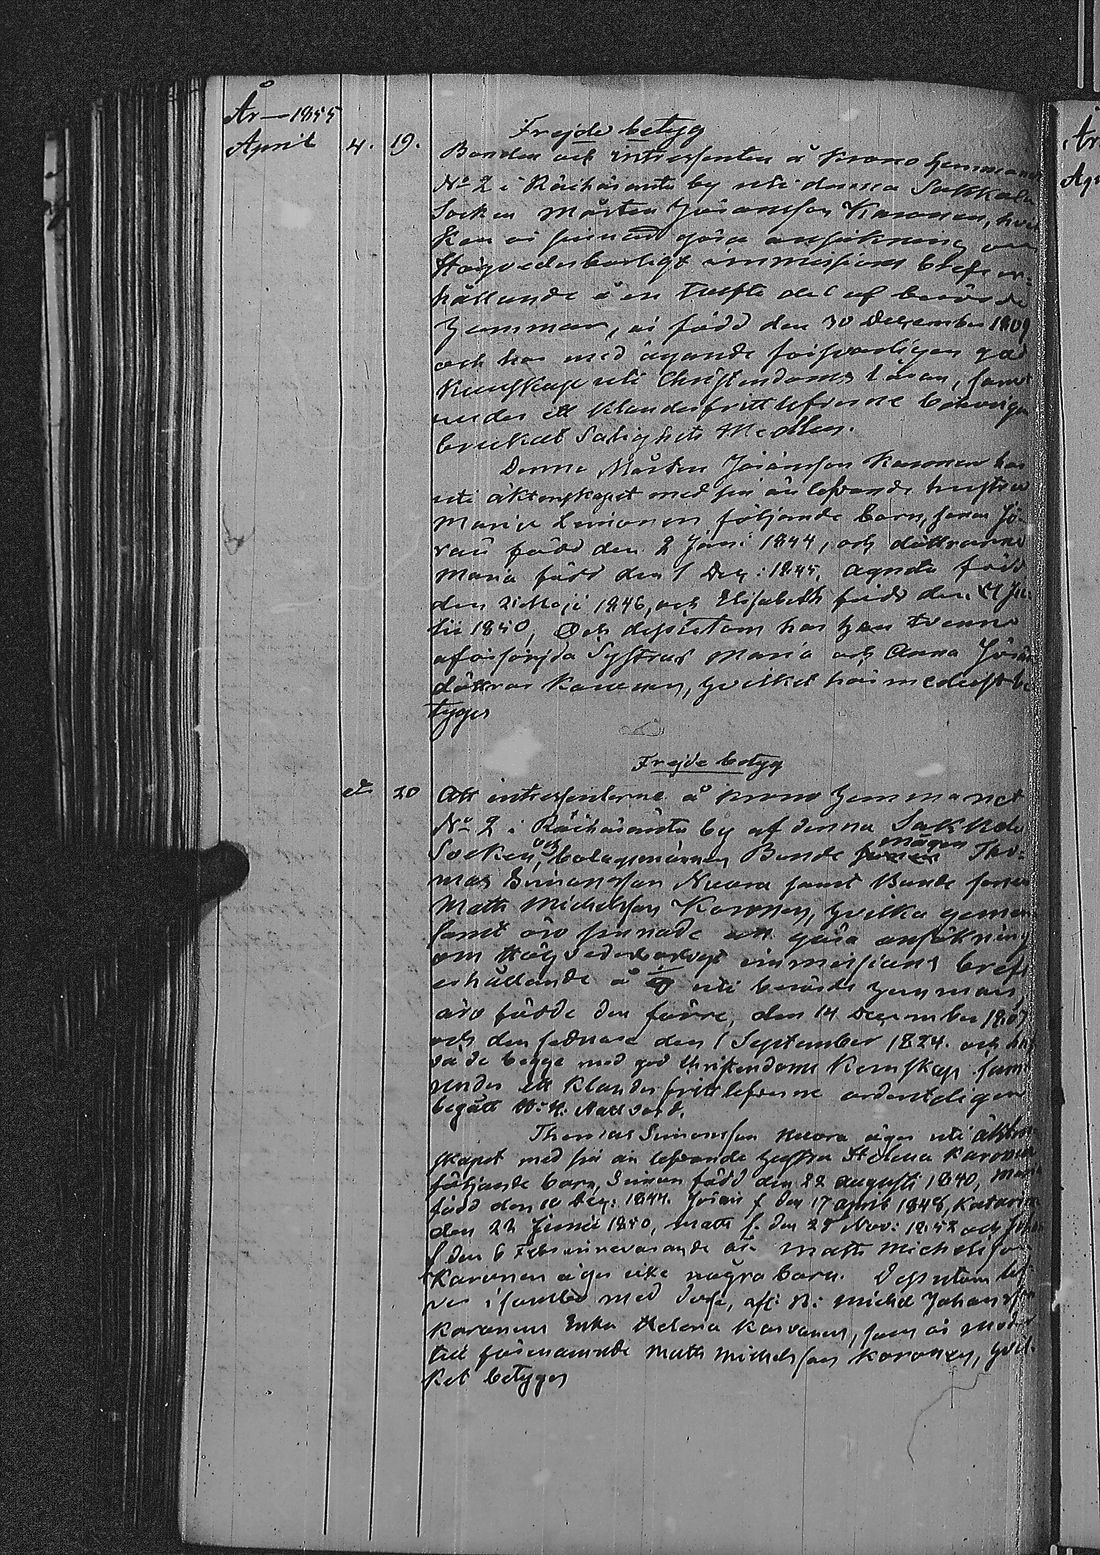 År 1855
April 4. 19. Frejde betyg
Bonden och intressenten å Krono hemmanet
No 2 i Räihäranta by uti denna Sakkola
Socken Mårten Jöransson Karonen, hvil
ken är sinnad göra ansökning om
Högvederbörligt immissions bref er-
hållande å en tolfte del af berörde
hemman, är född den 30 December 1809
och har med ägande försvarligen god
Kunskap uti Christendoms Läran, samt
under ett klanderfritt lefverne behörigen
brukat Salighets Medlen.
Denne Mårten Jöransson Karonen har
uti äktenskapet med sin än lefvande hustru
Maria Simonen följande barn, sonen Jö-
ran född den 2 Juni 1844, och döttrarna
Maria född den 1 Dec: 1845, Agneta född
den 21 Maji 1846, och Elisabeth född den 4 Ju-
lii 1850, Och dessutom har han tvenne
oförsörjda Systrar Maria och Anna Jörans
döttrar Karonen, hvilket härmedelst be
tygas
Frejde betyg
d. 20 Att intressenterne å Krono hemmanet
No 2 i Räihäranta by af denna Sakkola
Socken, och bolagsmännen Bonde mågen Tho-
mas Simonsson Nuora samt Bonde sonen
Matts Michelsson Karonen, hvilka gemen
samt äro sinnade att göra ansökning
om Högvederbörligt immissions brefs
erhållande å uti berörde hemman,
äro födde den förre, den 14 December 1807
och den sednare den 1 September 1824. och haf
va de begge med god Christendoms Kunskap samt
under ett klanderfritt lefverne ordentligen
begått H: H: Nattvard.
Thomas Simonsson Nuora äger uti äkten
skapet med sin än lefvande hustru Helena Karonen
följande barn, Simon född den 22 Augusti 1840, Maria
född den 10 Dec: 1844. Jöran f. den 17 April 1848, Katarina
den 22 Junii 1850, Matts f. den 28 Nov: 1852 och Johan
f den 6 Febr innevarande år. Matts Michelsson
Karonen äger icke några barn. Dessutom lef
ver i samband med desse, afl: B: Michel Johansson
Karonens Enka Helena Karvanen, som är moder
till förenämnde Matts Michelsson Karonen, hvil-
ket betygas